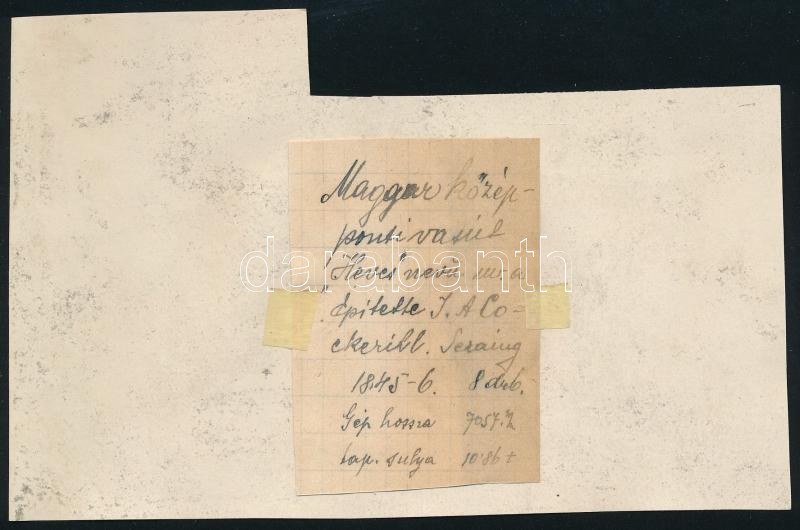 Magyar közép-
ponti vasút
"Heves" nevű
építette J. A Co-
ckerill. Seraing
1845-6. 8 drb.
Gép hossza 7057.
tap. sulya 10.86 t
darabanth